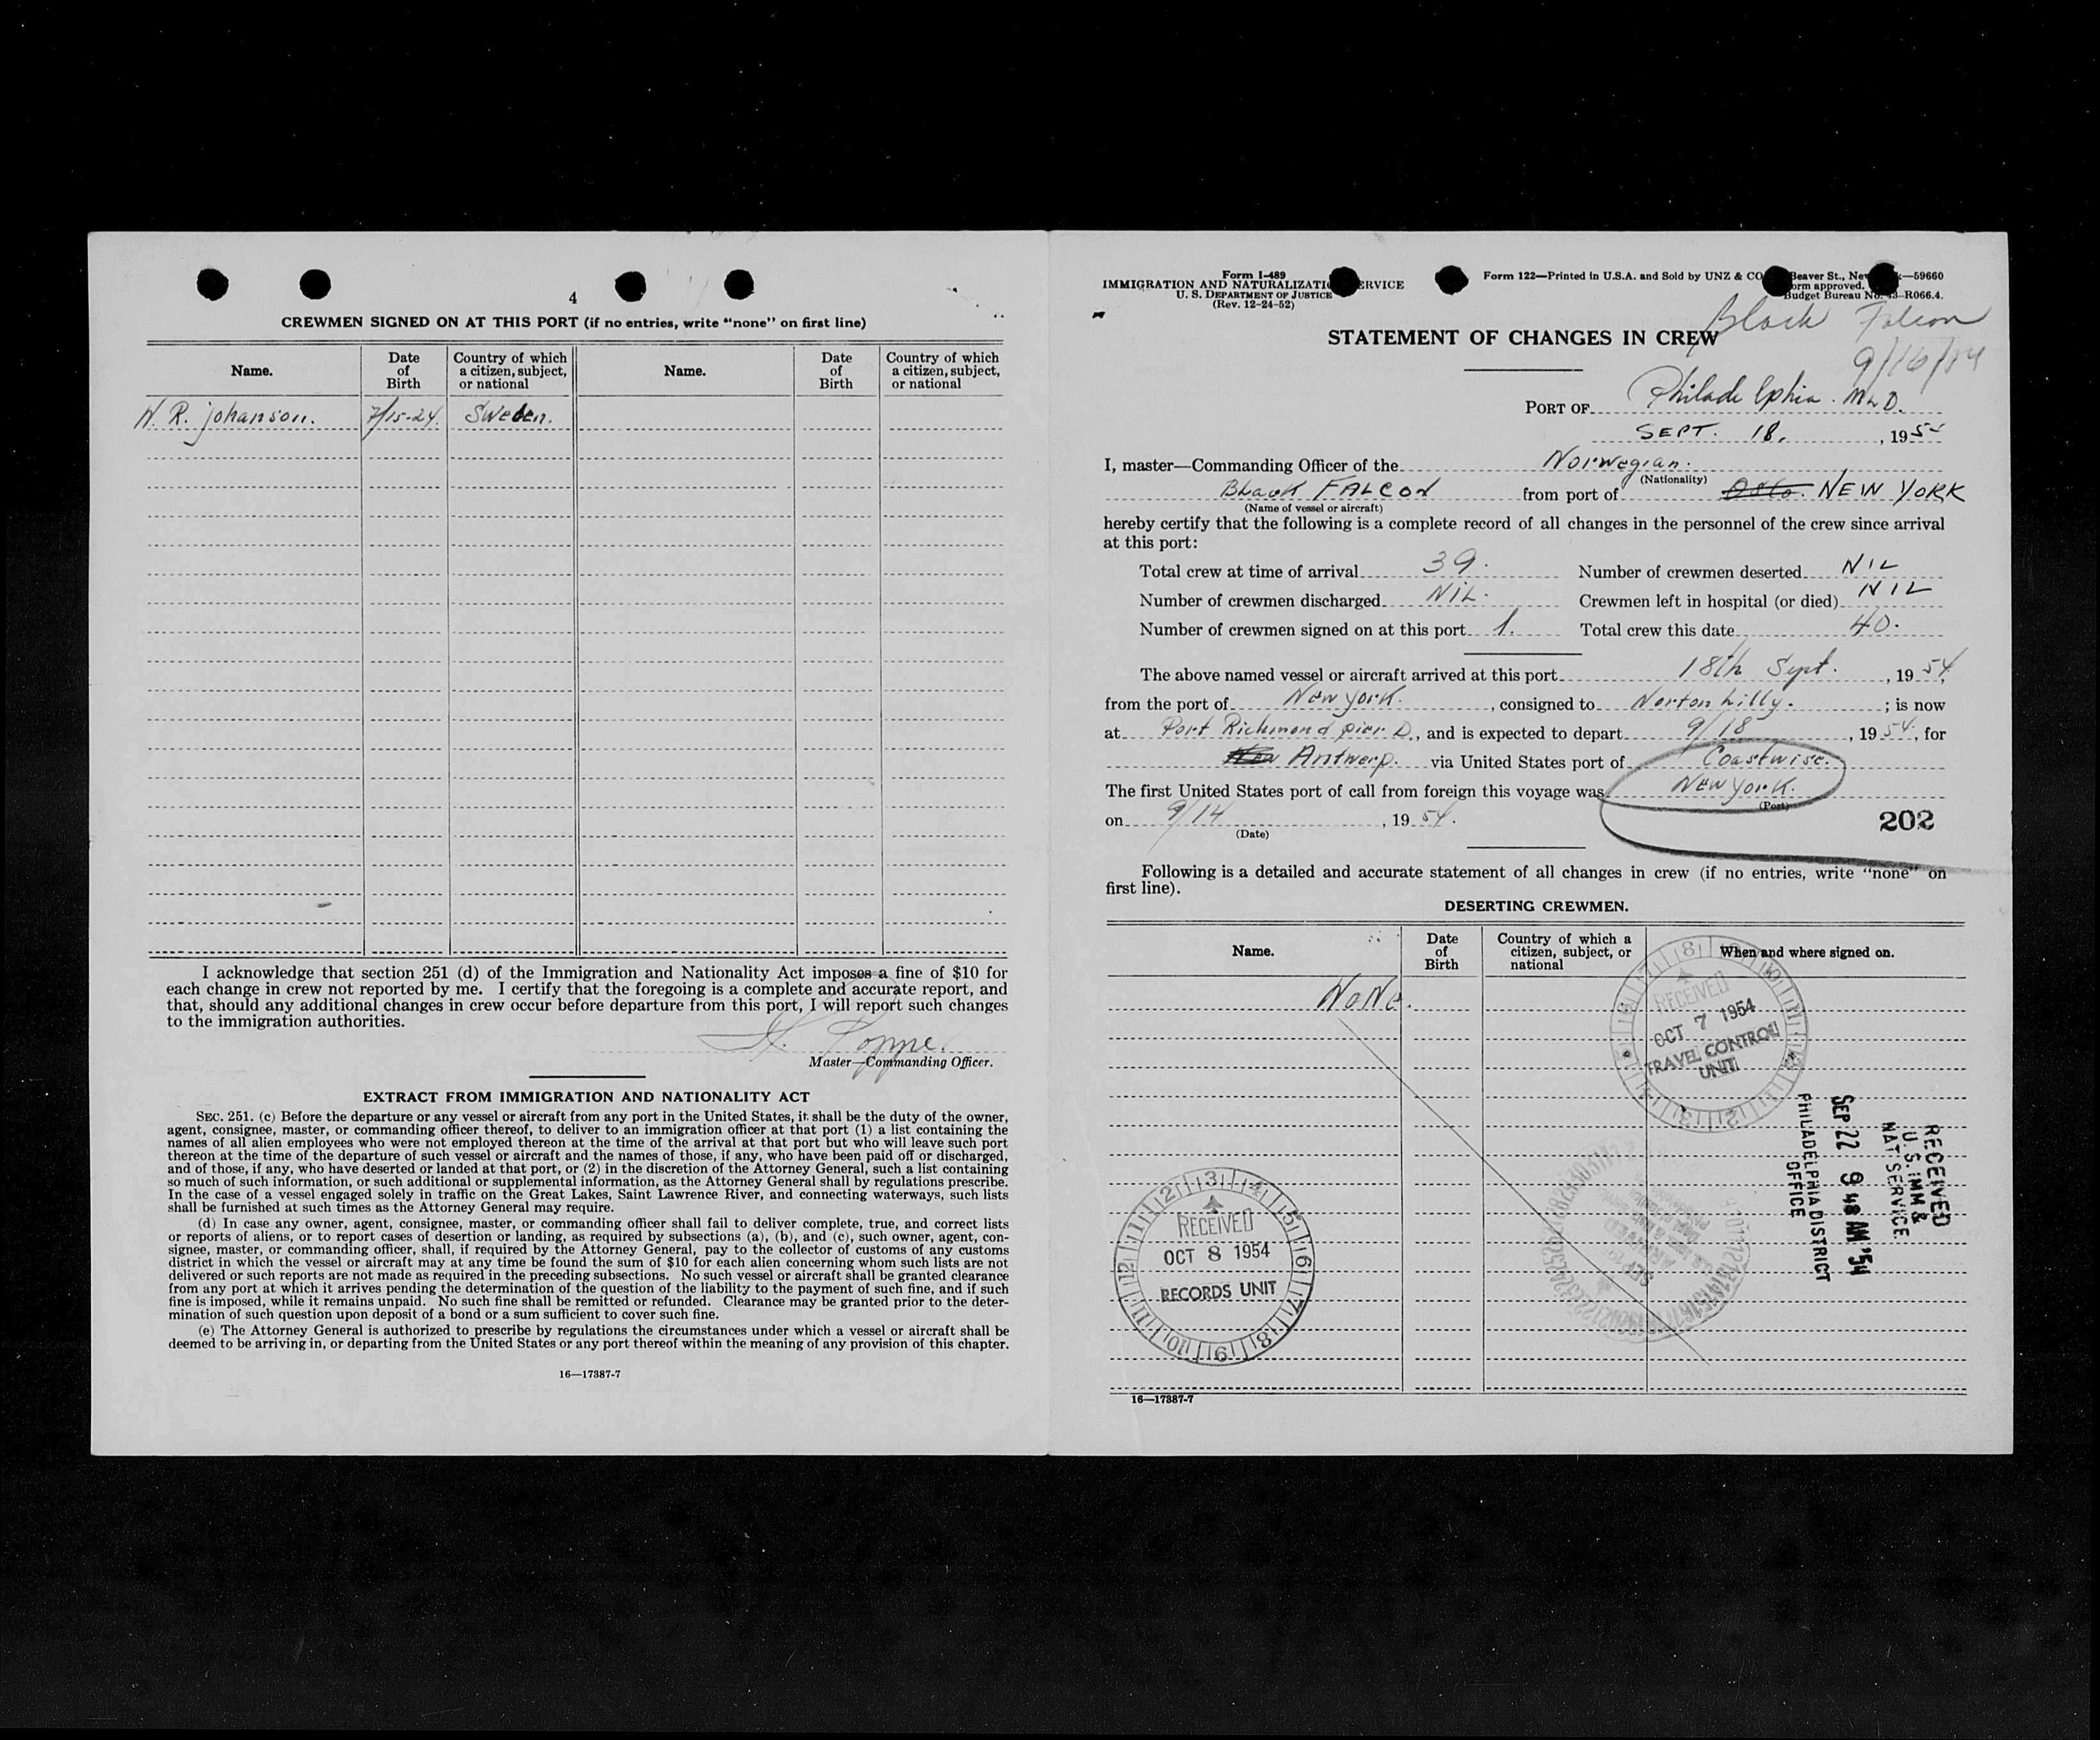 4
CREWMEN SIGNED ON AT THIS PORT (if no entries, write "none" on first line)
Name. Date of Birth Country of which a citizen, subject, or national Name. Date of Birth Country of which a citizen, subject, or national
W. R. Johanson. 7/15-24. Sweden.
I acknowledge that section 251 (d) of the Immigration and Nationality Act imposes a fine of $10 for
each change in crew not reported by me. I certify that the foregoing is a complete and accurate report, and
that, should any additional changes in crew occur before departure from this port, I will report such changes
to the immigration authorities.
Master—Commanding Officer.
EXTRACT FROM IMMIGRATION AND NATIONALITY ACT
SEC. 251. (c) Before the departure or any vessel or aircraft from any port in the United States, it shall be the duty of the owner,
agent, consignee, master, or commanding officer thereof, to deliver to an immigration officer at that port (1) a list containing the
names of all alien employees who were not employed thereon at the time of the arrival at that port but who will leave such port
thereon at the time of the departure of such vessel or aircraft and the names of those, if any, who have been paid off or discharged,
and of those, if any, who have deserted or landed at that port, or (2) in the discretion of the Attorney General, such a list containing
so much of such information, or such additional or supplemental information, as the Attorney General shall by regulations prescribe.
In the case of a vessel engaged solely in traffic on the Great Lakes, Saint Lawrence River, and connecting waterways, such lists
shall be furnished at such times as the Attorney General may require.
(d) In case any owner, agent, consignee, master, or commanding officer shall fail to deliver complete, true, and correct lists
or reports of aliens, or to report cases of desertion or landing, as required by subsections (a), (b), and (c), such owner, agent, con-
signee, master, or commanding officer, shall, if required by the Attorney General, pay to the collector of customs of any customs
district in which the vessel or aircraft may at any time be found the sum of $10 for each alien concerning whom such lists are not
delivered or such reports are not made as required in the preceding subsections. No such vessel or aircraft shall be granted clearance
from any port at which it arrives pending the determination of the question of the liability to the payment of such fine, and if such
fine is imposed, while it remains unpaid. No such fine shall be remitted or refunded. Clearance may be granted prior to the deter-
mination of such question upon deposit of a bond or a sum sufficient to cover such fine.
(e) The Attorney General is authorized to prescribe by regulations the circumstances under which a vessel or aircraft shall be
deemed to be arriving in, or departing from the United States or any port thereof within the meaning of any provision of this chapter.
16—17387-7
Form I-489
IMMIGRATION AND NATURALIZATI ERVICE
U. S. DEPARTMENT OF JUSTICE
(Rev. 12-24-52)
Form 122—Printed in U.S.A. and Sold by UNZ & CO Beaver St., New k—59660
orm approved.
Budget Bureau No. 43-R066.4.
Black Falcon
STATEMENT OF CHANGES IN CREW
9/16/54
PORT OF Philadelphia.
SEPT. 18, 195
I, master—Commanding Officer of the Norwegian.
(Nationality)
Black FALCON from port of Oslo. NEW YORK
(Name of vessel or aircraft)
hereby certify that the following is a complete record of all changes in the personnel of the crew since arrival
at this port:
Total crew at time of arrival 39. Number of crewmen deserted NIL
Number of crewmen discharged NIL. Crewmen left in hospital (or died) NIL
Number of crewmen signed on at this port 1. Total crew this date 40.
The above named vessel or aircraft arrived at this port 18th Sept., 1954,
from the port of New York., consigned to Norton Lilly.; is now
at Port Richmond pier D., and is expected to depart 9/18, 1954, for
Antwerp. via United States port of Coastwise.
The first United States port of call from foreign this voyage was New York.
(Port)
on 9/14, 1954.
(Date)
202
Following is a detailed and accurate statement of all changes in crew (if no entries, write "none" on
first line).
DESERTING CREWMEN.
Name. Date of Birth Country of which a citizen, subject, or national When and where signed on.
None.
RECEIVED
OCT 7 1954
TRAVEL CONTROL
UNIT
RECEIVED
U. S. IMM &
NAT SERVICE
SEP 22 9 48 AM '54
PHILADELPHIA DISTRICT
OFFICE
RECEIVED
OCT 8 1954
RECORDS UNIT
16—17387-7